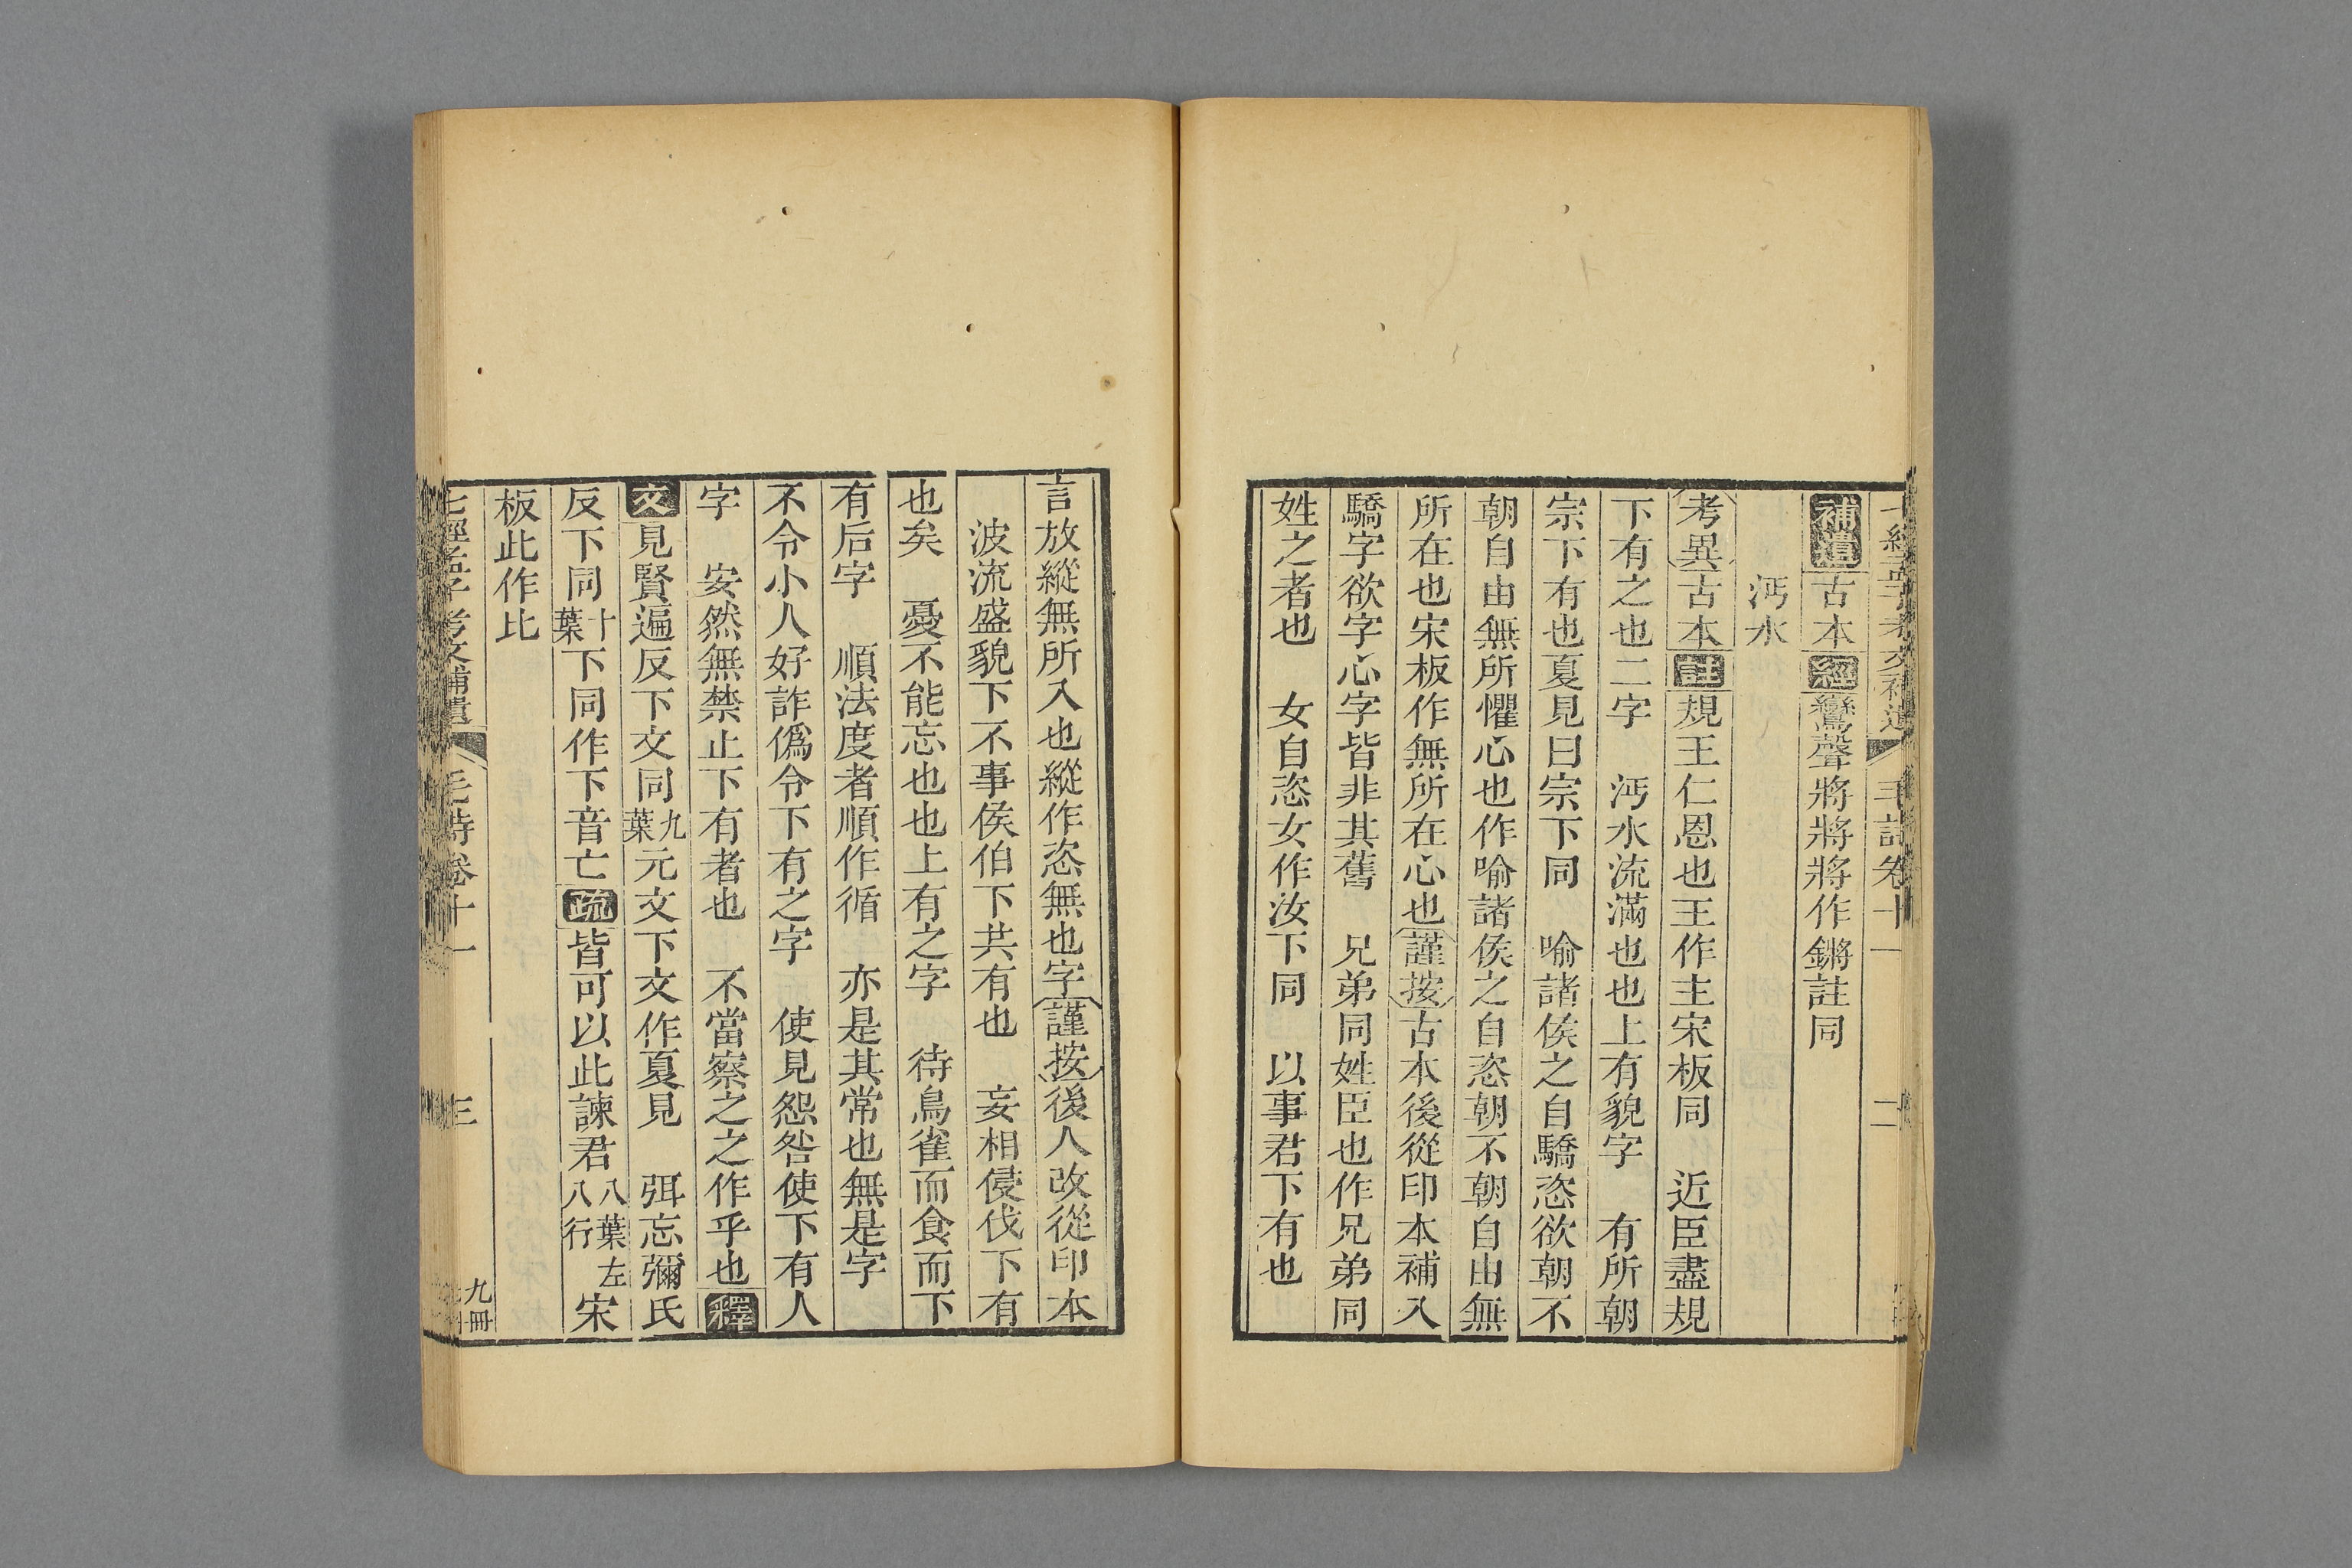 補遺古本經鸞聲將將將作鏘註同
沔水
考異古本註規王仁恩也王作主宋板同　近臣盡規
下有之也二字　沔水流滿也也上有貌字　有所朝
宗下有也夏見曰宗下同　喻諸侯之自驕恣欲朝不
朝自由無所懼心也作喻諸侯之自恣朝不朝自由無
所在也宋板作無所在心也謹按古本後從印本補入
驕字欲字心字皆非其舊　兄弟同姓臣也作兄弟同
姓之者也　女自恣女作汝下同　以事君下有也
言放縱無所入也縱作恣無也字謹按後人改從印本
波流盛貌下不事侯伯下共有也　妄相侵伐下有
也矣　憂不能忘也也上有之字　待鳥雀而食而下
有后字　順法度者順作循　亦是其常也無是字
不令小人好詐僞令下有之字　使見怨咎使下有人
字　安然無禁止下有者也　不當察之之作乎也釋
文見賢遍反下文同九葉元文下文作夏見　弭忘彌氏
反下同十葉下同作下音亡疏皆可以此諫君八葉左八行宋
板此作比
七經孟子考文補遺　毛詩卷十一　三　九冊